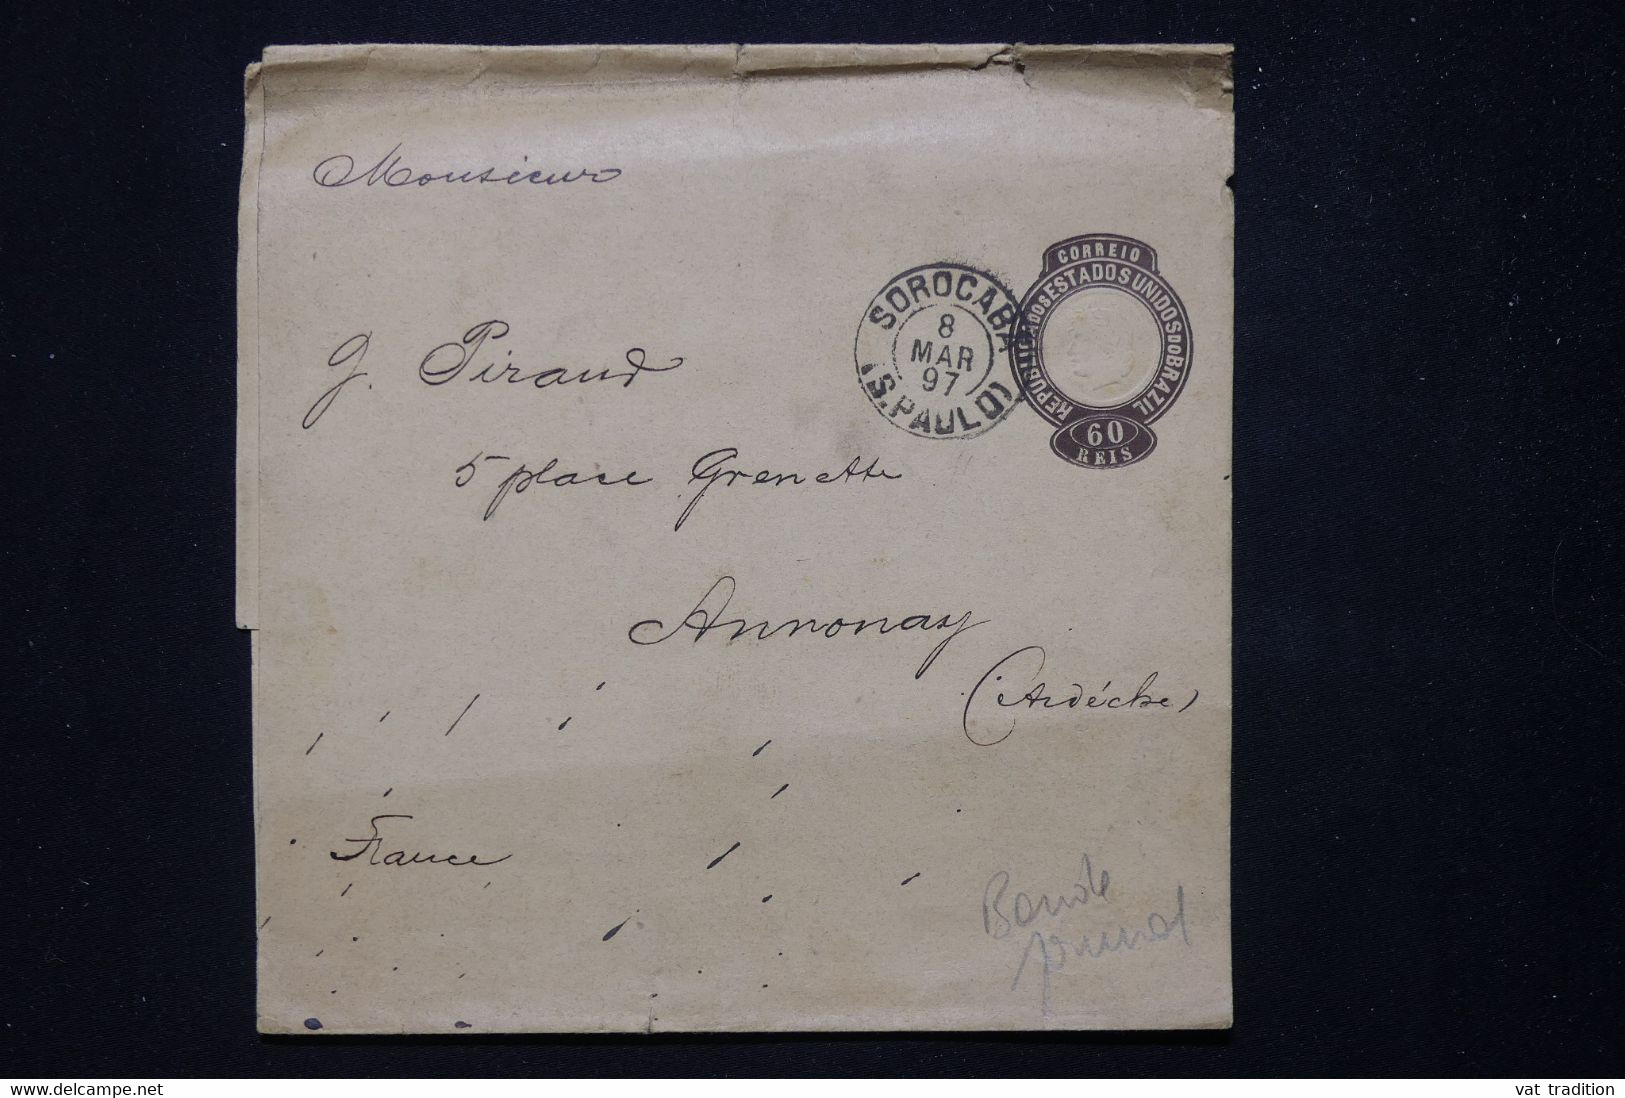 Monsieur
G. Piraud
5 place Grenette
Annonay
(Ardèche)
France
SOROCABA
8
MAR
97
(S. PAULO)
CORREIO
REPUBLICA DOS ESTADOS UNIDOS DO BRAZIL
60
REIS
Bande
journal
fr.delcampe.net
vat tradition